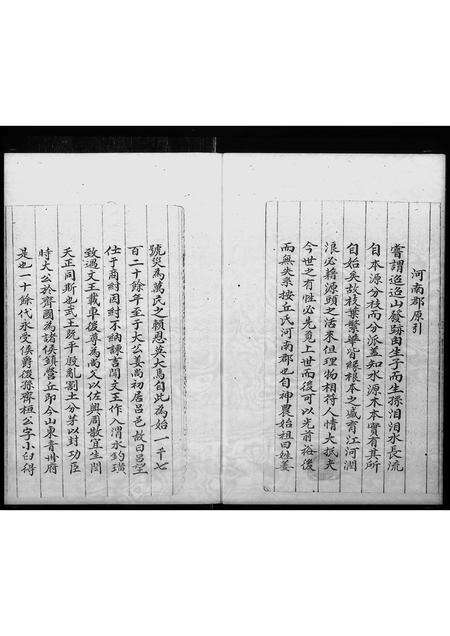 河南郡原引
嘗謂迢迢山發跡由生子而生孫汨汨水長流
自本源分枝而分派蓋知水源木本實有其所
自始矣故枝葉繁華皆緣根本之盛育江河濶
浪必藉源頭之活來但理物相符人情大抵夫
今世之有性必先覓上世而後可以光前裕後
而無失系按丘氏河南郡也自神農始祖曰姓姜
號災為萬民之賴恩英大馬自此為始一千七
百二十餘年至于大公姜尚初居呂邑故曰呂望
仕于商紂因紂不納諫言聞文王作入渭水釣璜
致遇文王載車俊尊為尚父以佐興周散宜生閎
天正同斯也武王既平殷亂割土分茅以封功臣
時大公於齊國為諸侯鎮營丘即今山東青州府
是也一十餘代永受侯爵後孫齊桓公字小白得